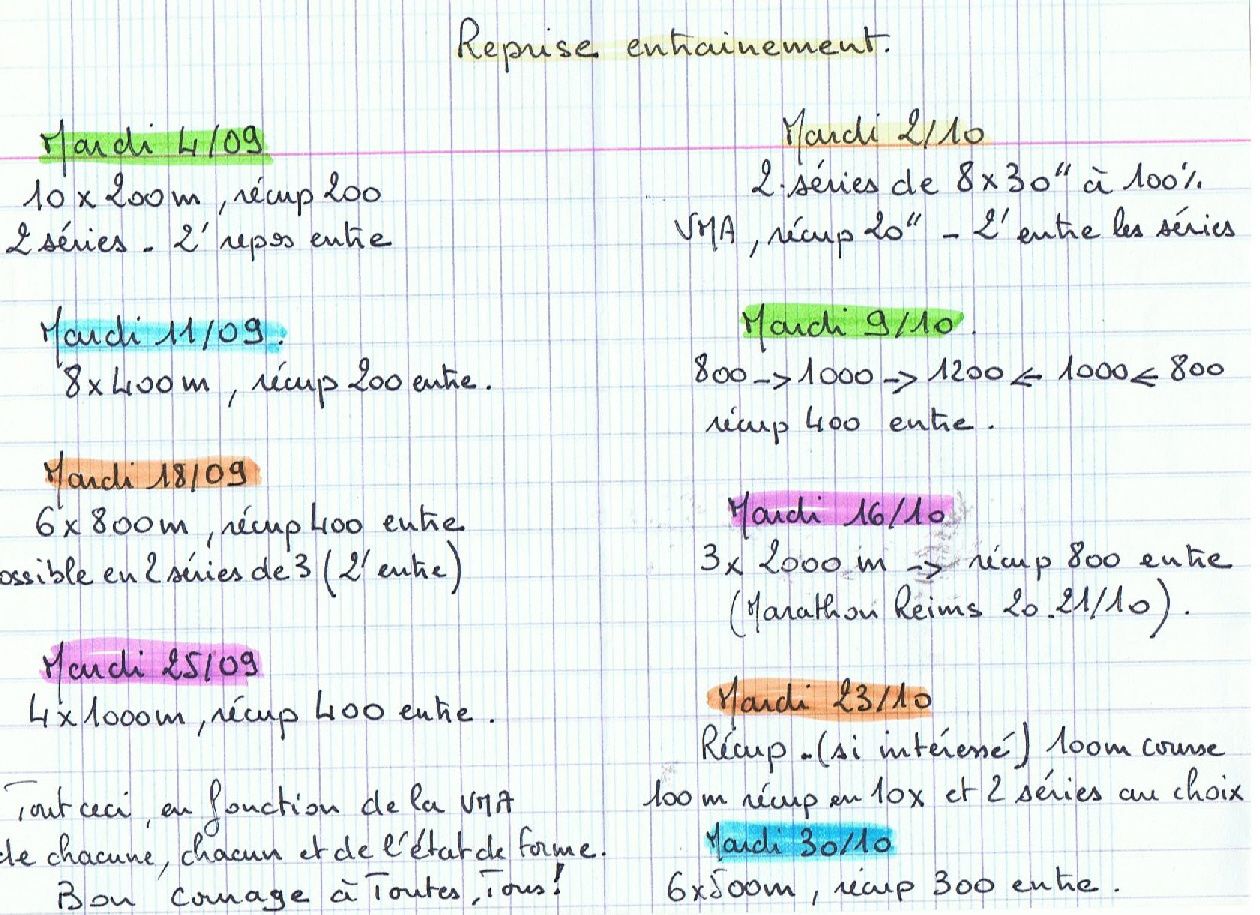 Reprise entrainement.
Mardi 4/09
10 x 200m, récup 200
2 séries - 2' repos entre
Mardi 11/09.
8 x 400m, récup 200 entre.
Mardi 18/09
6 x 800m, récup 400 entre
ossible en 2 séries de 3 (2' entre)
Mardi 25/09
4 x 1000m, récup 400 entre.
Tout ceci, en fonction de la VMA
de chacune, chacun et de l'état de forme.
Bon courage à Toutes, Tous!
Mardi 2/10
2 séries de 8 x 30" à 100%
VMA, récup 20" - 2' entre les séries
Mardi 9/10.
800 -> 1000 -> 1200 <- 1000 <- 800
récup 400 entre.
Mardi 16/10
3 x 2000 m -> récup 800 entre
(Marathon Reims 20.21/10).
Mardi 23/10
Récup - (si intéressé) 100m course
100 m récup en 10x et 2 séries au choix
Mardi 30/10
6 x 500m, récup 300 entre.